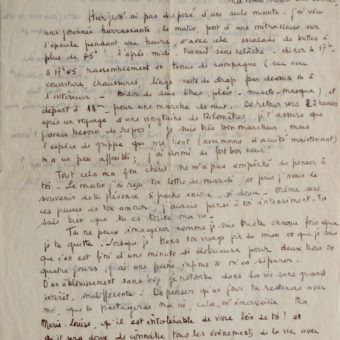 Hier je n'ai pas disposé d'une seule minute. J'ai vécu
une journée harassante le matin, port d'une mitrailleuse sur
l'épaule pendant une heure, avec escalade de buttes à
plus de 45°. L'après midi travail sans relâche - dîner à 17h
à 17h45 rassemblement en tenue de campagne (sac avec
couverture, chaussures, linge, toile de drap par dessus ou à
l'intérieur - Bidon de deux litres plein - musette - masque) et
départ à 18h pour une marche de nuit. De retour vers 22 heures
après un voyage d'une vingtaine de kilomètres, je t'assure que
j'avais besoin de repos! Je suis très bon marcheur, mais
l'espèce de grippe qui me tient (au moins d'acuité maintenant)
m'a un peu affaibli; j'ai dormi de fort bon cœur!
Tout cela ma chérie ne m'a pas empêché de penser à
toi. Le matin, j'ai reçu ta lettre de mardi et puis, j'avais le
souvenir de ta présence si proche encore, si douce - Même sans
ces preuves de ton amour, j'aurais pensé à toi sans cesse. Tu
sais bien que tu es toute ma vie.
Tu ne peux imaginer comme je suis triste chaque fois que
je te quitte. Lorsque je tiens ton visage près du mien et que je sais
que j'en ai fini d'une minute si délicieuse pour deux trois ou
quatre jours, j'ai une peine infinie à m'en séparer.
D'un éblouissement sans , je retombe dans la vie sans grand
intérêt, indifférente - De penser qu'un jour tu resteras avec
moi, que tu partageras ma vie, cela m'émerveille. Ma
Marie-Louise, qu'il est intolérable de vivre loin de toi! et
qu'il sera doux de connaître tous les événements de la vie avec